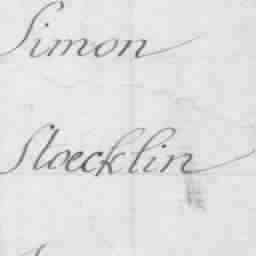 Simon
Stoecklin